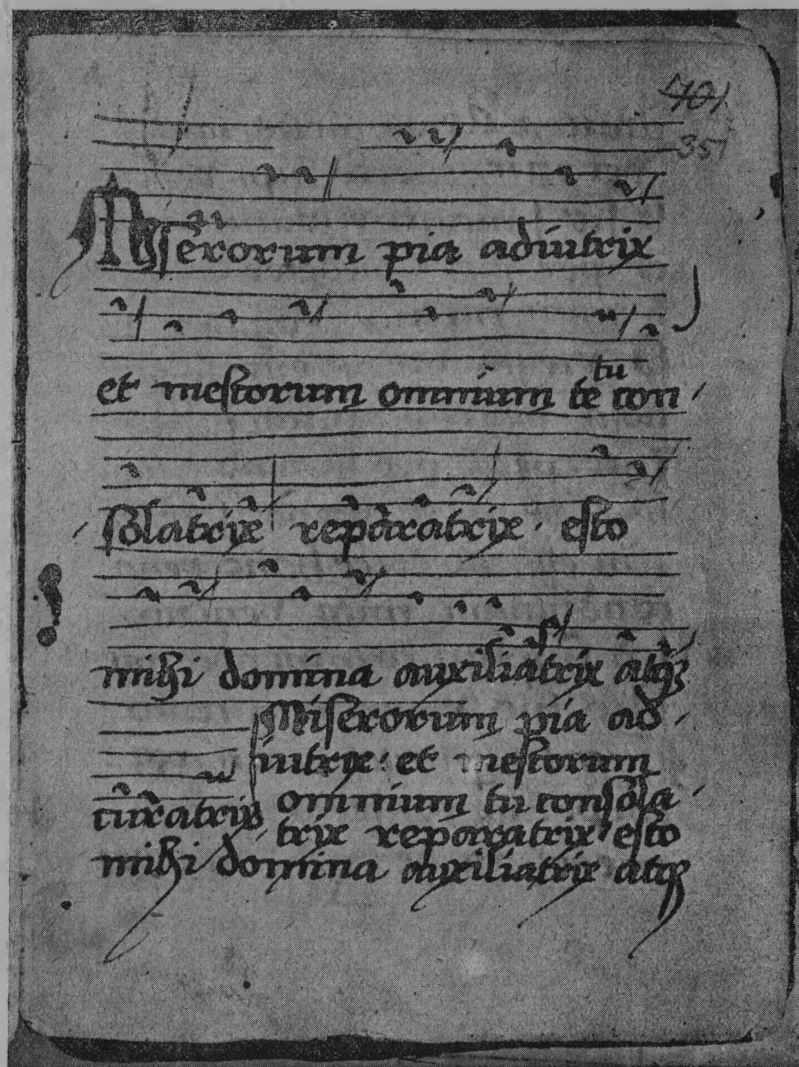 701
35
Miserorum pia adiutrix
et mestorum omnium te tu con
solatrix reparatrix. esto
mihi domina auxiliatrix atqꝫ
Miserorum pia ad
iutrix. et mestorum
omnium tu consola
curatrix
trix reparatrix esto
mihi domina auxiliatrix atqꝫ